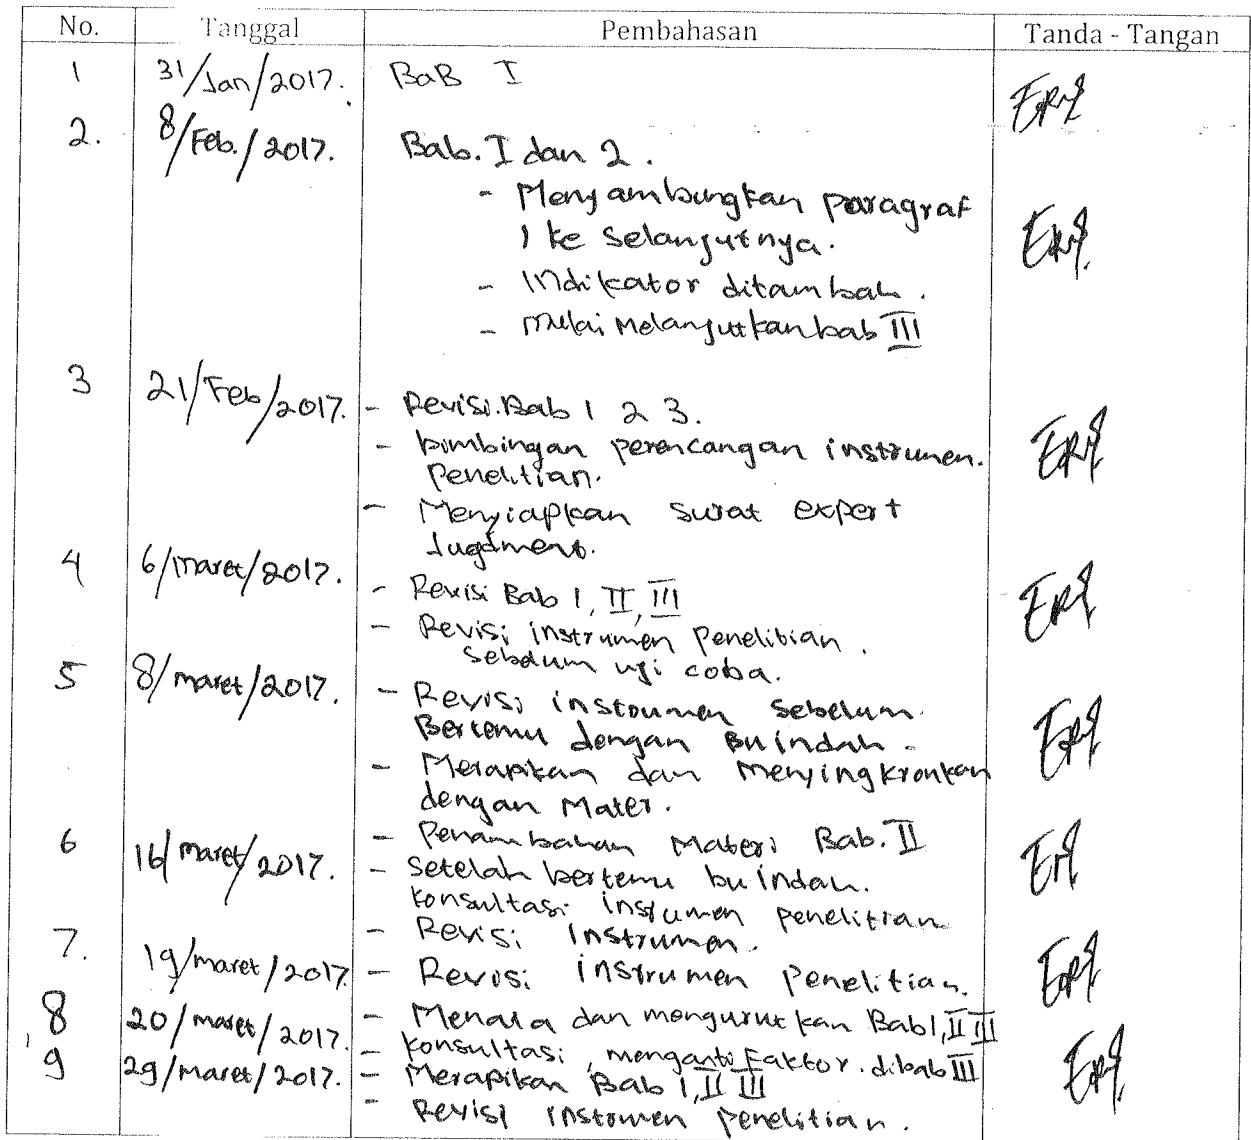 No. Tanggal Pembahasan Tanda - Tangan
1 31/Jan/2017. BaB I
2. 8/Feb./2017. Bab. I dan 2.
- Menyambungkan paragraf
1 ke selanjutnya.
- Indikator ditambah.
- Mulai Melanjutkan bab III
3 21/Feb/2017. - Revisi. Bab 1 2 3.
- bimbingan perencangan instrumen.
Penelitian.
- Menyiapkan surat expert
Jugdment.
4 6/Maret/2017. - Revisi Bab 1, II, III
- Revisi instrumen Penelitian.
Sebelum uji coba.
5 8/maret/2017. - Revisi instrumen Sebelum.
Bertemu dengan Bu indah -
- Merapikan dan Menyingkronkan
dengan Mater.
6 16/maret/2017. - Penambahan Materi Bab. II
- Setelah bertemu bu indah.
Konsultasi instumen penelitian
- Revisi Instrumen.
7. 19/maret/2017 - Revisi instrumen Penelitian.
8 20/maret/2017. - Menata dan mengurutkan Bab 1, II III
- Konsultasi, menganti Faktor. dibab III
9 29/maret/2017. - Merapikan Bab 1, II III
- Revisi instrumen penelitian.